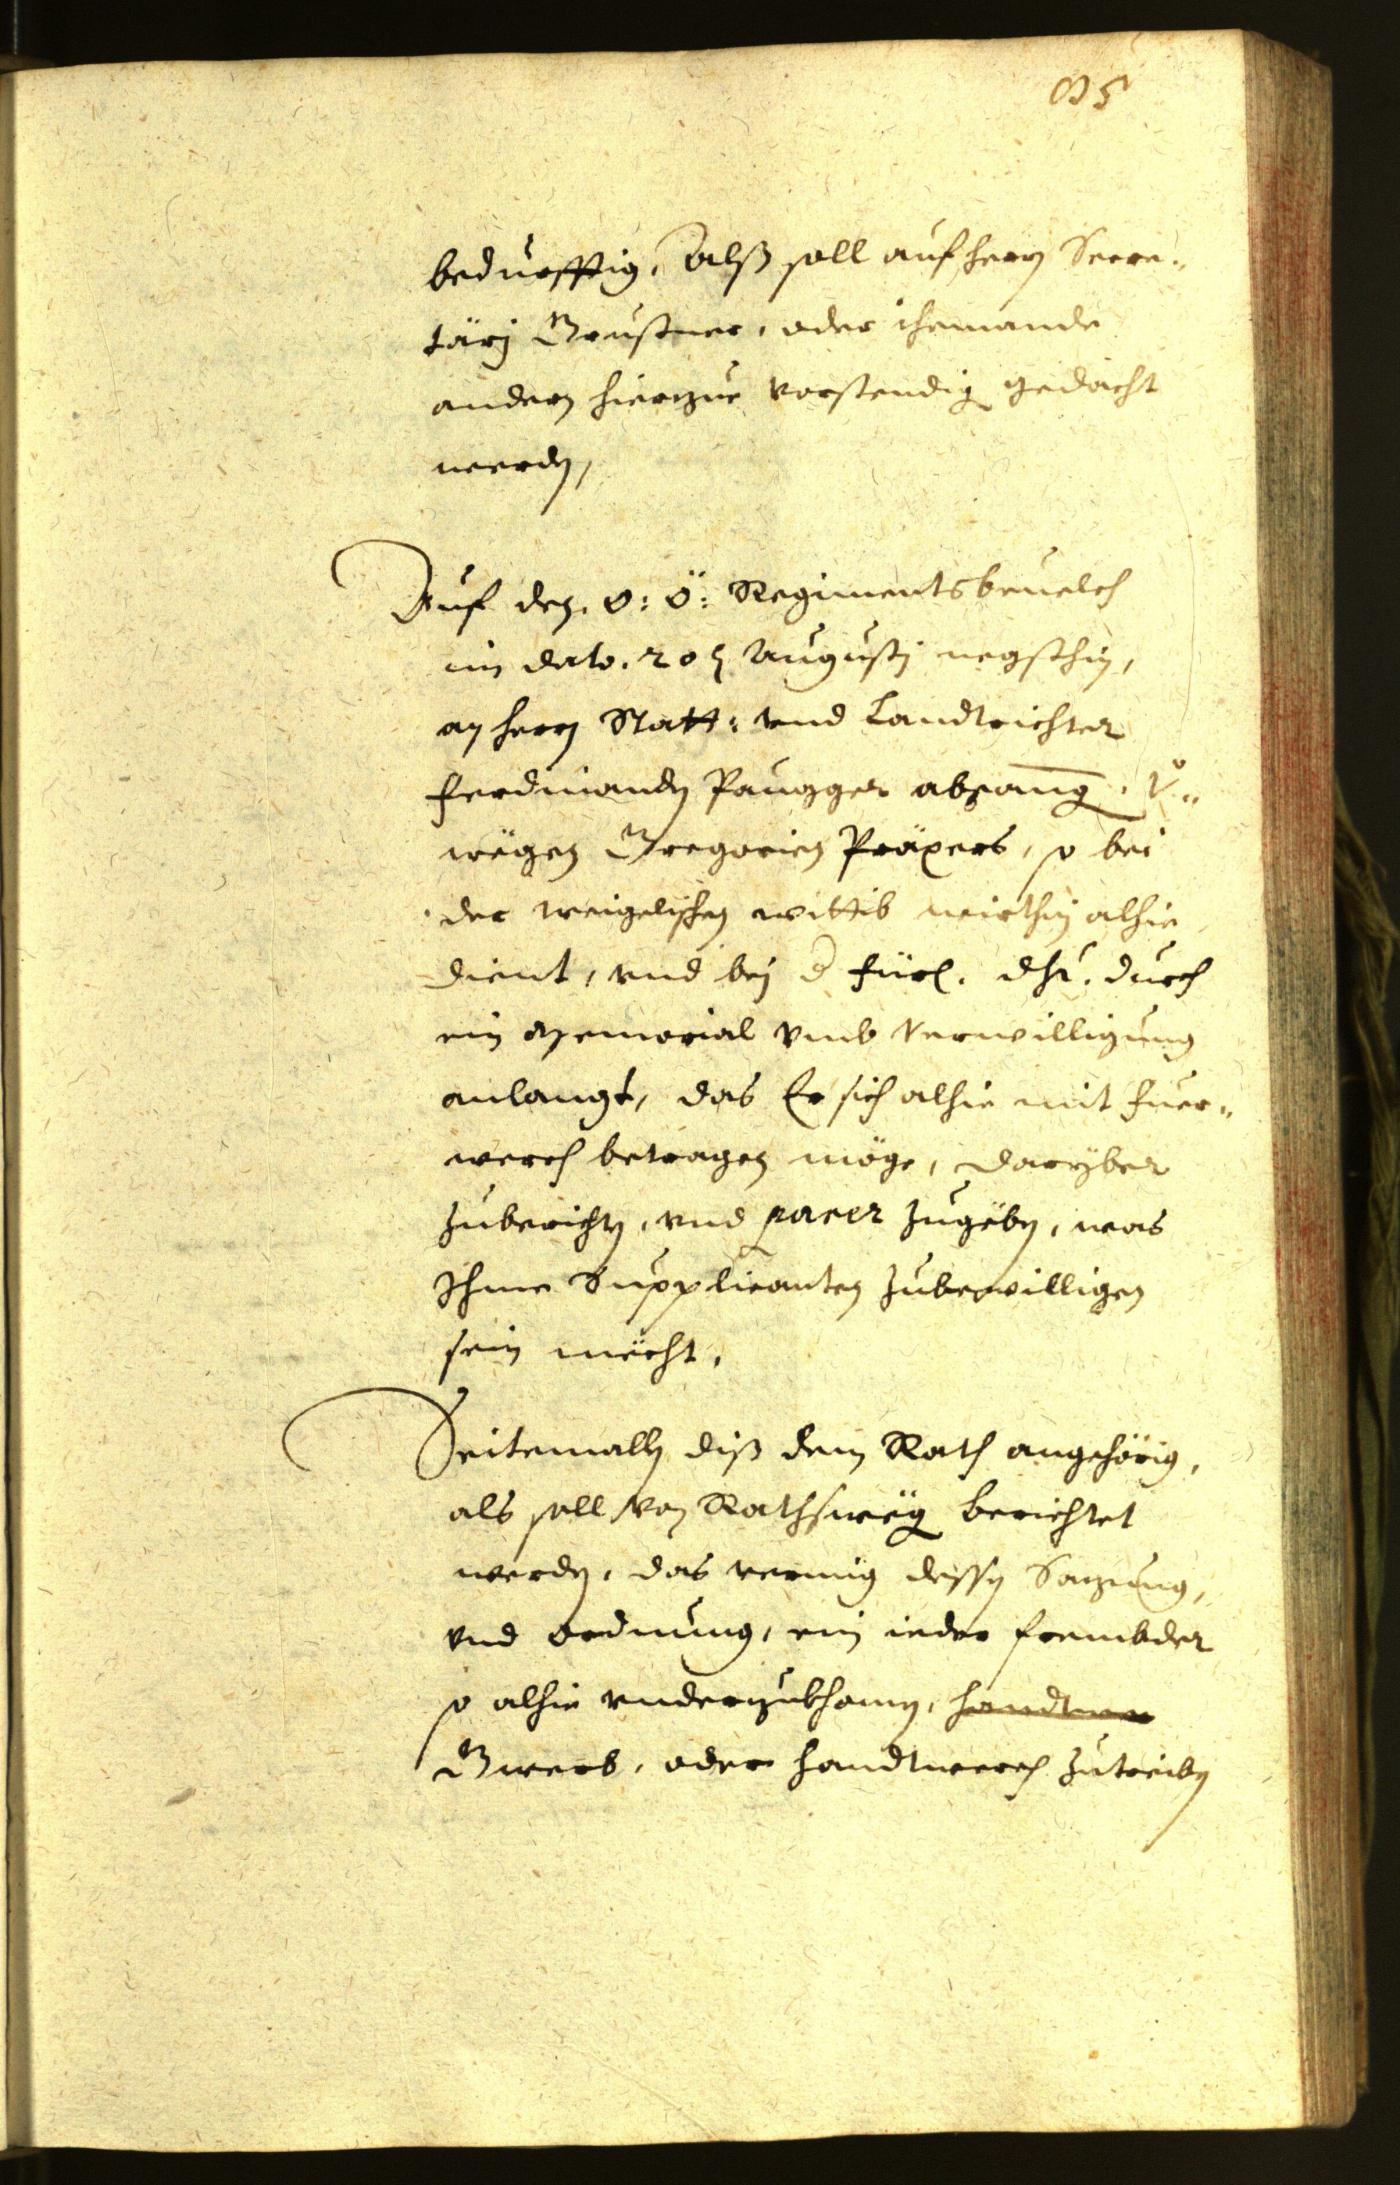 95
bedurfftig, Alß soll auf herrn Secre„
tärj Grustner, oder jhemande
andern hierzue verstendig gedacht
werden,
Auf den. O: Ö: Regimentsbeuelch
im dato. 20t Augustj negsthin,
an herrn Statt: vnd Landtrichter
Ferdinanden Paugger abgang.
wegen Gregorien Präxers, so bei
der weigelischen wittib wirthin alhie
dient, vnd bej d fürl. dht. durch
ein Memorial vmb verwilligung
anlangt, das Er sich alhie mit fuer„
werch betragen möge, darüber
zuberichten, vnd parer zugeben, was
Ihme Supplicanten zubewilligen
sein mëcht,
Seitemalln diß dem Rath angehörig,
als soll von Rathsweg berichtet
werden, das vermüg dessen Satzung,
vnd ordnung, ein ieder frembder
so alhie vnderzukhomen, handtwe
Gwerb, oder handtwerch zutreiben